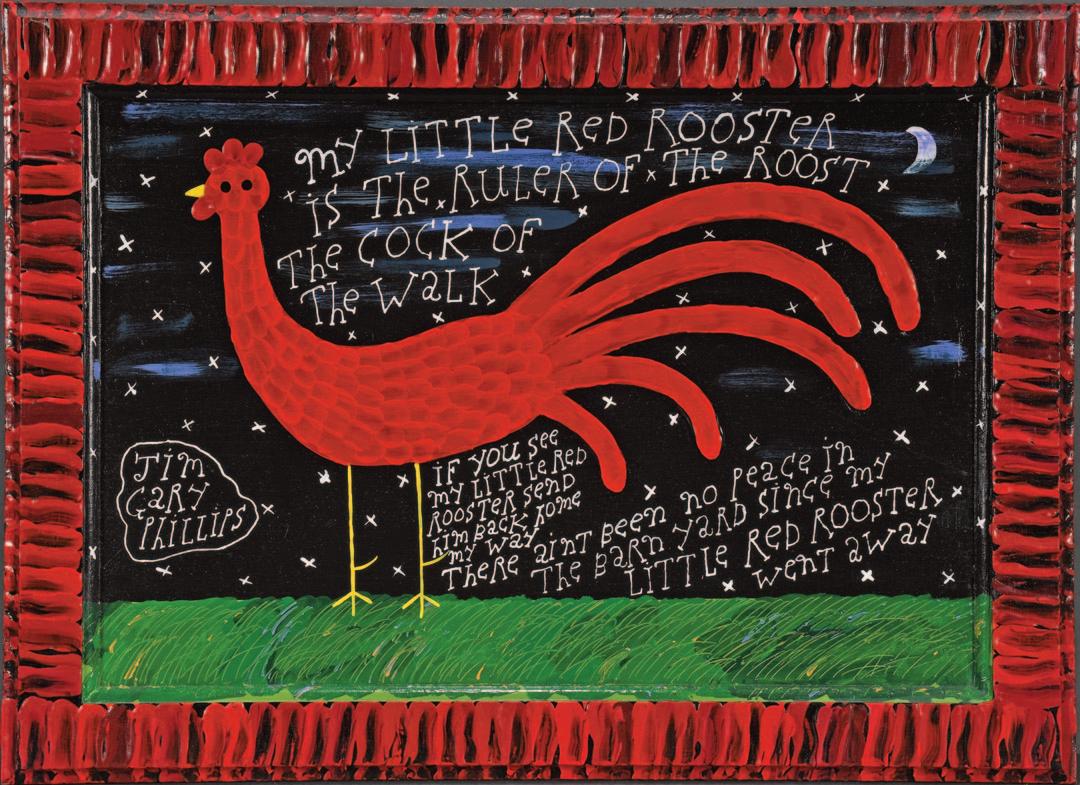 my LiTTLe Red ROOSTeR
is The RuLeR OF The ROOST
The COCK OF
The WaLK
iF you see
my LiTTLe Red
ROOSTeR SenD
Him Back Home
my way
THeRe ainT been no peace in
THe BaRn yaRD since my
LiTTLe Red ROOSTeR
went away
Jim
Gary
Phillips